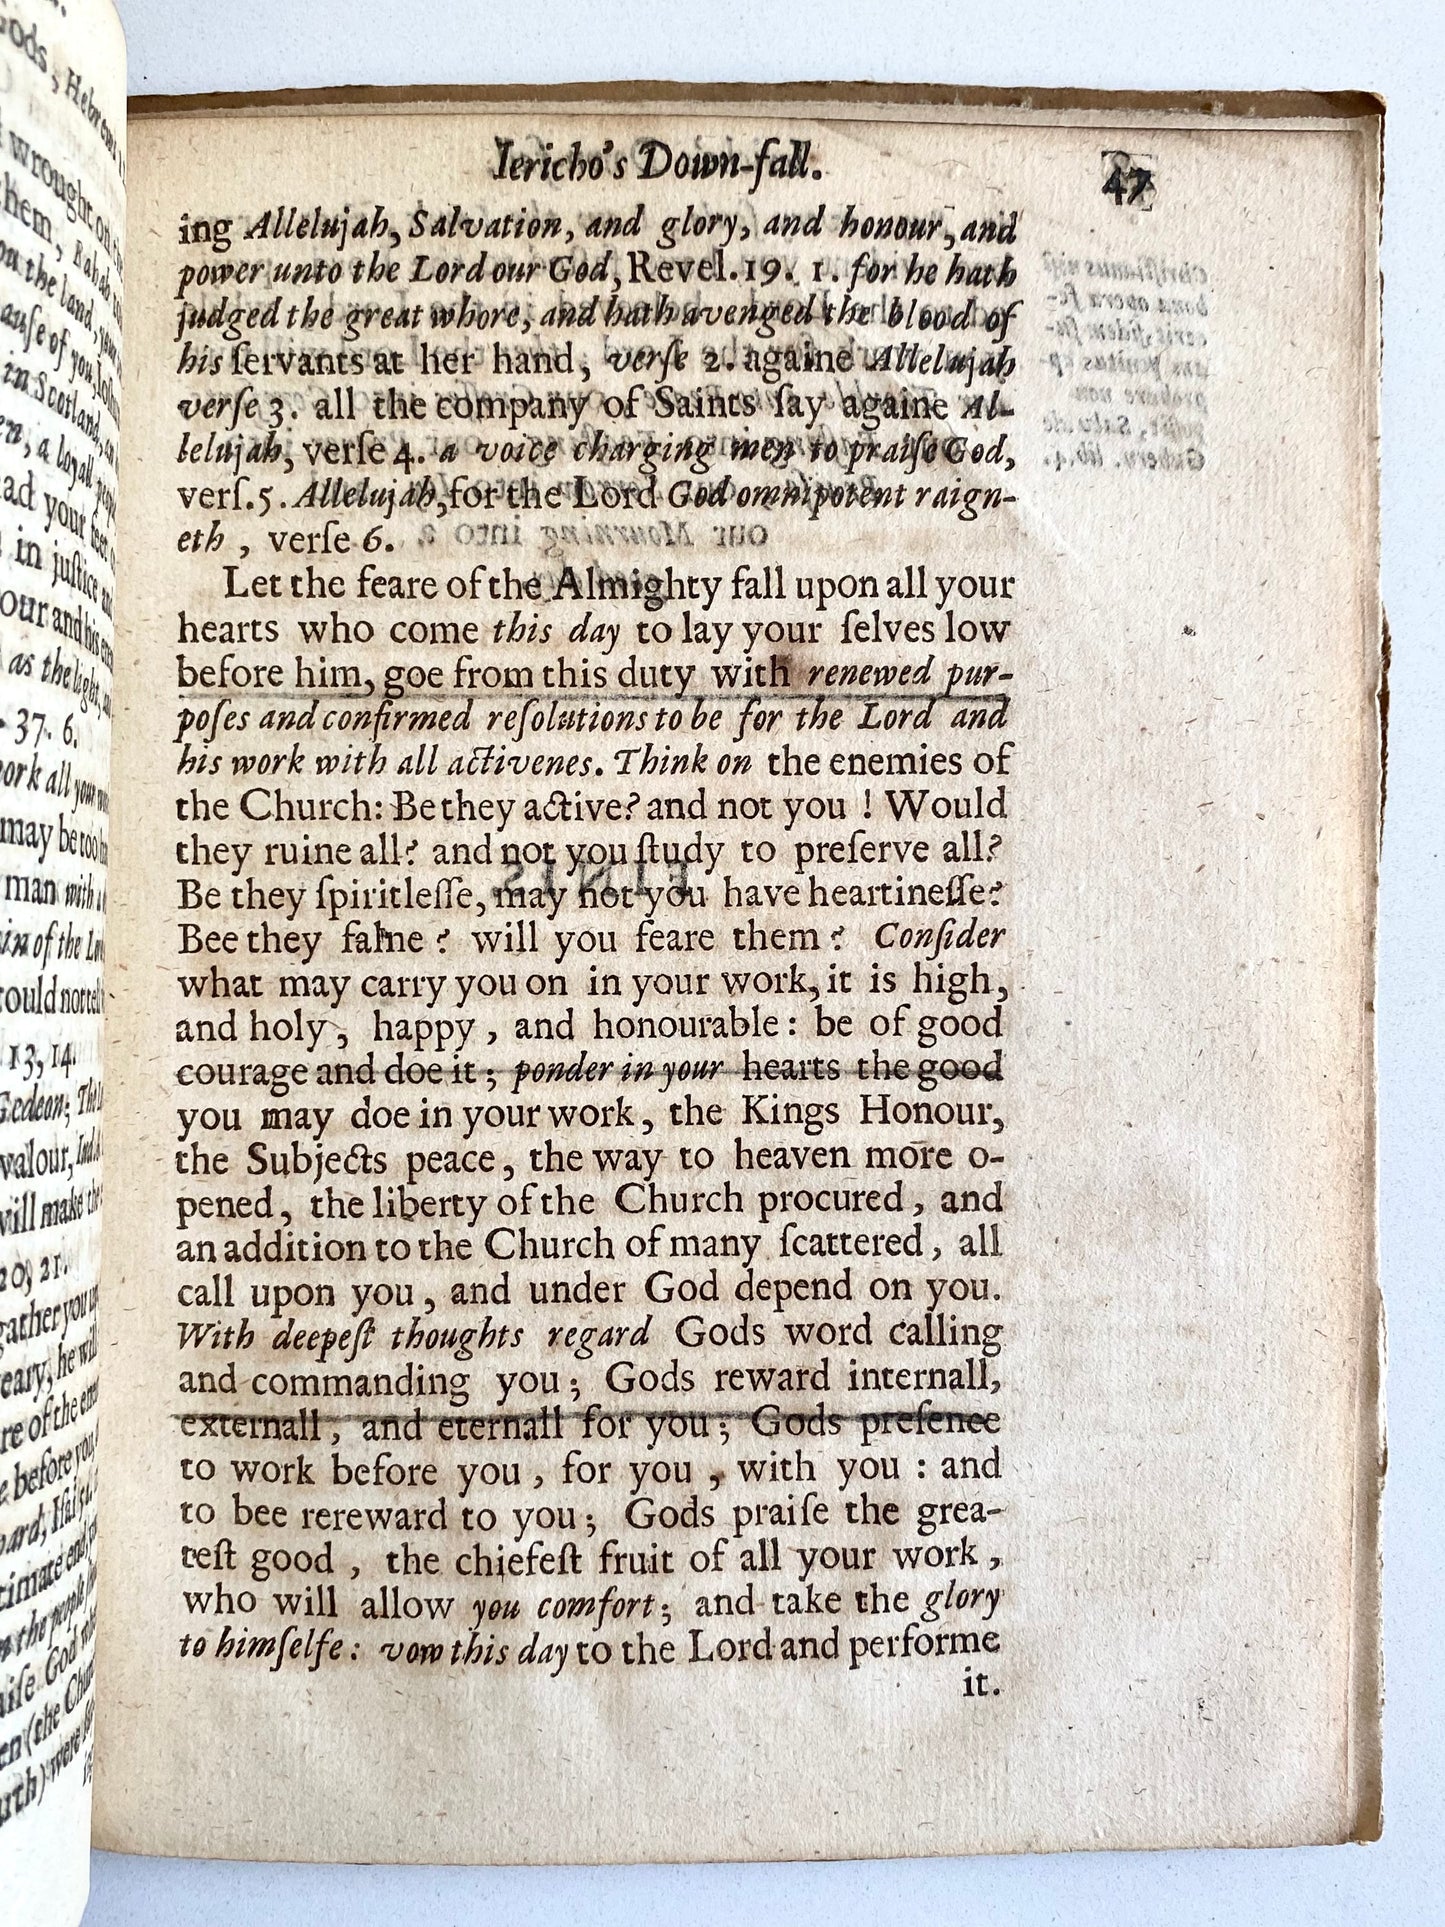 Iericho's Down-fall.
47
ing Allelujah, Salvation, and glory, and honour, and
power unto the Lord our God, Revel. 19. 1. for he hath
judged the great whore, and hath avenged the blood of
his ſervants at her hand, verſe 2. againe Allelujah
verſe 3. all the company of Saints ſay againe Al-
lelujah, verſe 4. a voice charging men to praiſe God,
verſ. 5. Allelujah, for the Lord God omnipotent raign-
eth , verſe 6.
Let the feare of the Almighty fall upon all your
hearts who come this day to lay your ſelves low
before him, goe from this duty with renewed pur-
poſes and confirmed reſolutions to be for the Lord and
his work with all activenes. Think on the enemies of
the Church: Be they active? and not you ! Would
they ruine all? and not you ſtudy to preſerve all?
Be they ſpiritleſſe, may not you have heartineſſe?
Bee they falne ? will you feare them ? Conſider
what may carry you on in your work, it is high,
and holy, happy , and honourable : be of good
courage and doe it ; ponder in your hearts the good
you may doe in your work, the Kings Honour,
the Subjects peace, the way to heaven more o-
pened, the liberty of the Church procured, and
an addition to the Church of many ſcattered, all
call upon you, and under God depend on you.
With deepeſt thoughts regard Gods word calling
and commanding you; Gods reward internall,
externall, and eternall for you; Gods preſence
to work before you, for you, with you : and
to bee rereward to you; Gods praiſe the grea-
teſt good , the chiefeſt fruit of all your work ,
who will allow you comfort; and take the glory
to himſelfe: vow this day to the Lord and performe
it.
Gods, Hebrews
wrought on
them, Rahab
on the land, your
auſe of you, Joſhua
in Scotland,
a loyall people
your feet
in juſtice and
our and his
as the light,
37. 6.
work all your
may be too
man with
of the
could not tell
13, 14.
Gedeon;
valour,
will make the
20, 21.
gather you
he will
re of the
before you
ward, Iſai 52.
end,
the people
praiſe God
(the Church
were